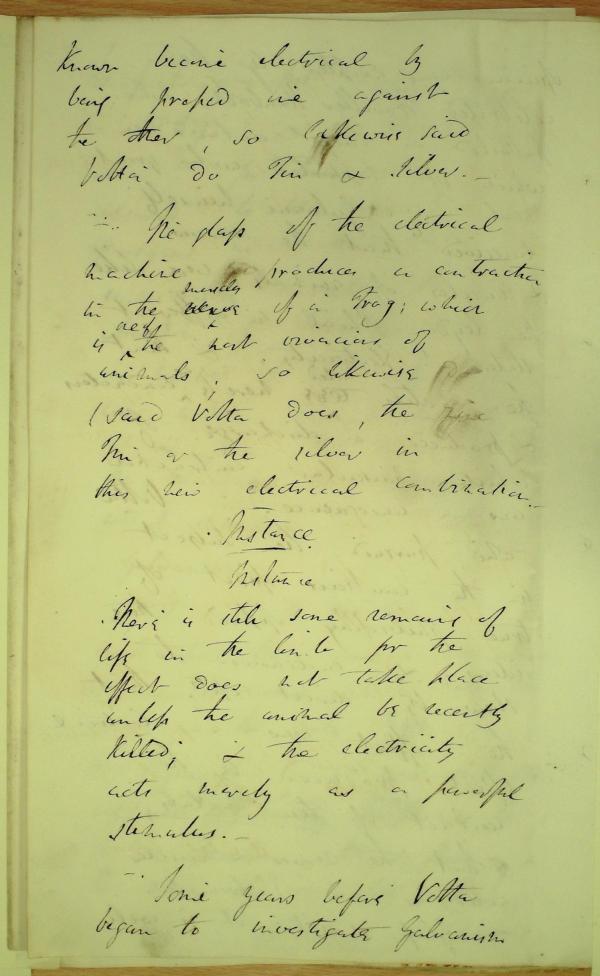 Known become electrical by
being pressed one against
the other, so likewise said
Volta do Tin & silver. —
The glass of the electrical
machine produces a contraction
muscles
in the nerve of a Frog; which
next
is the most vivacious of
animals, so likewise
(said Volta does, the
Tin or the silver in
this new electrical combination. —
Instance
Instance
There is still some remains of
life in the limb for the
effect does not take place
unless the animal be recently
killed; & the electricity
acts merely as a powerful
stimulus. —
Some years before Volta
began to investigate Galvanism